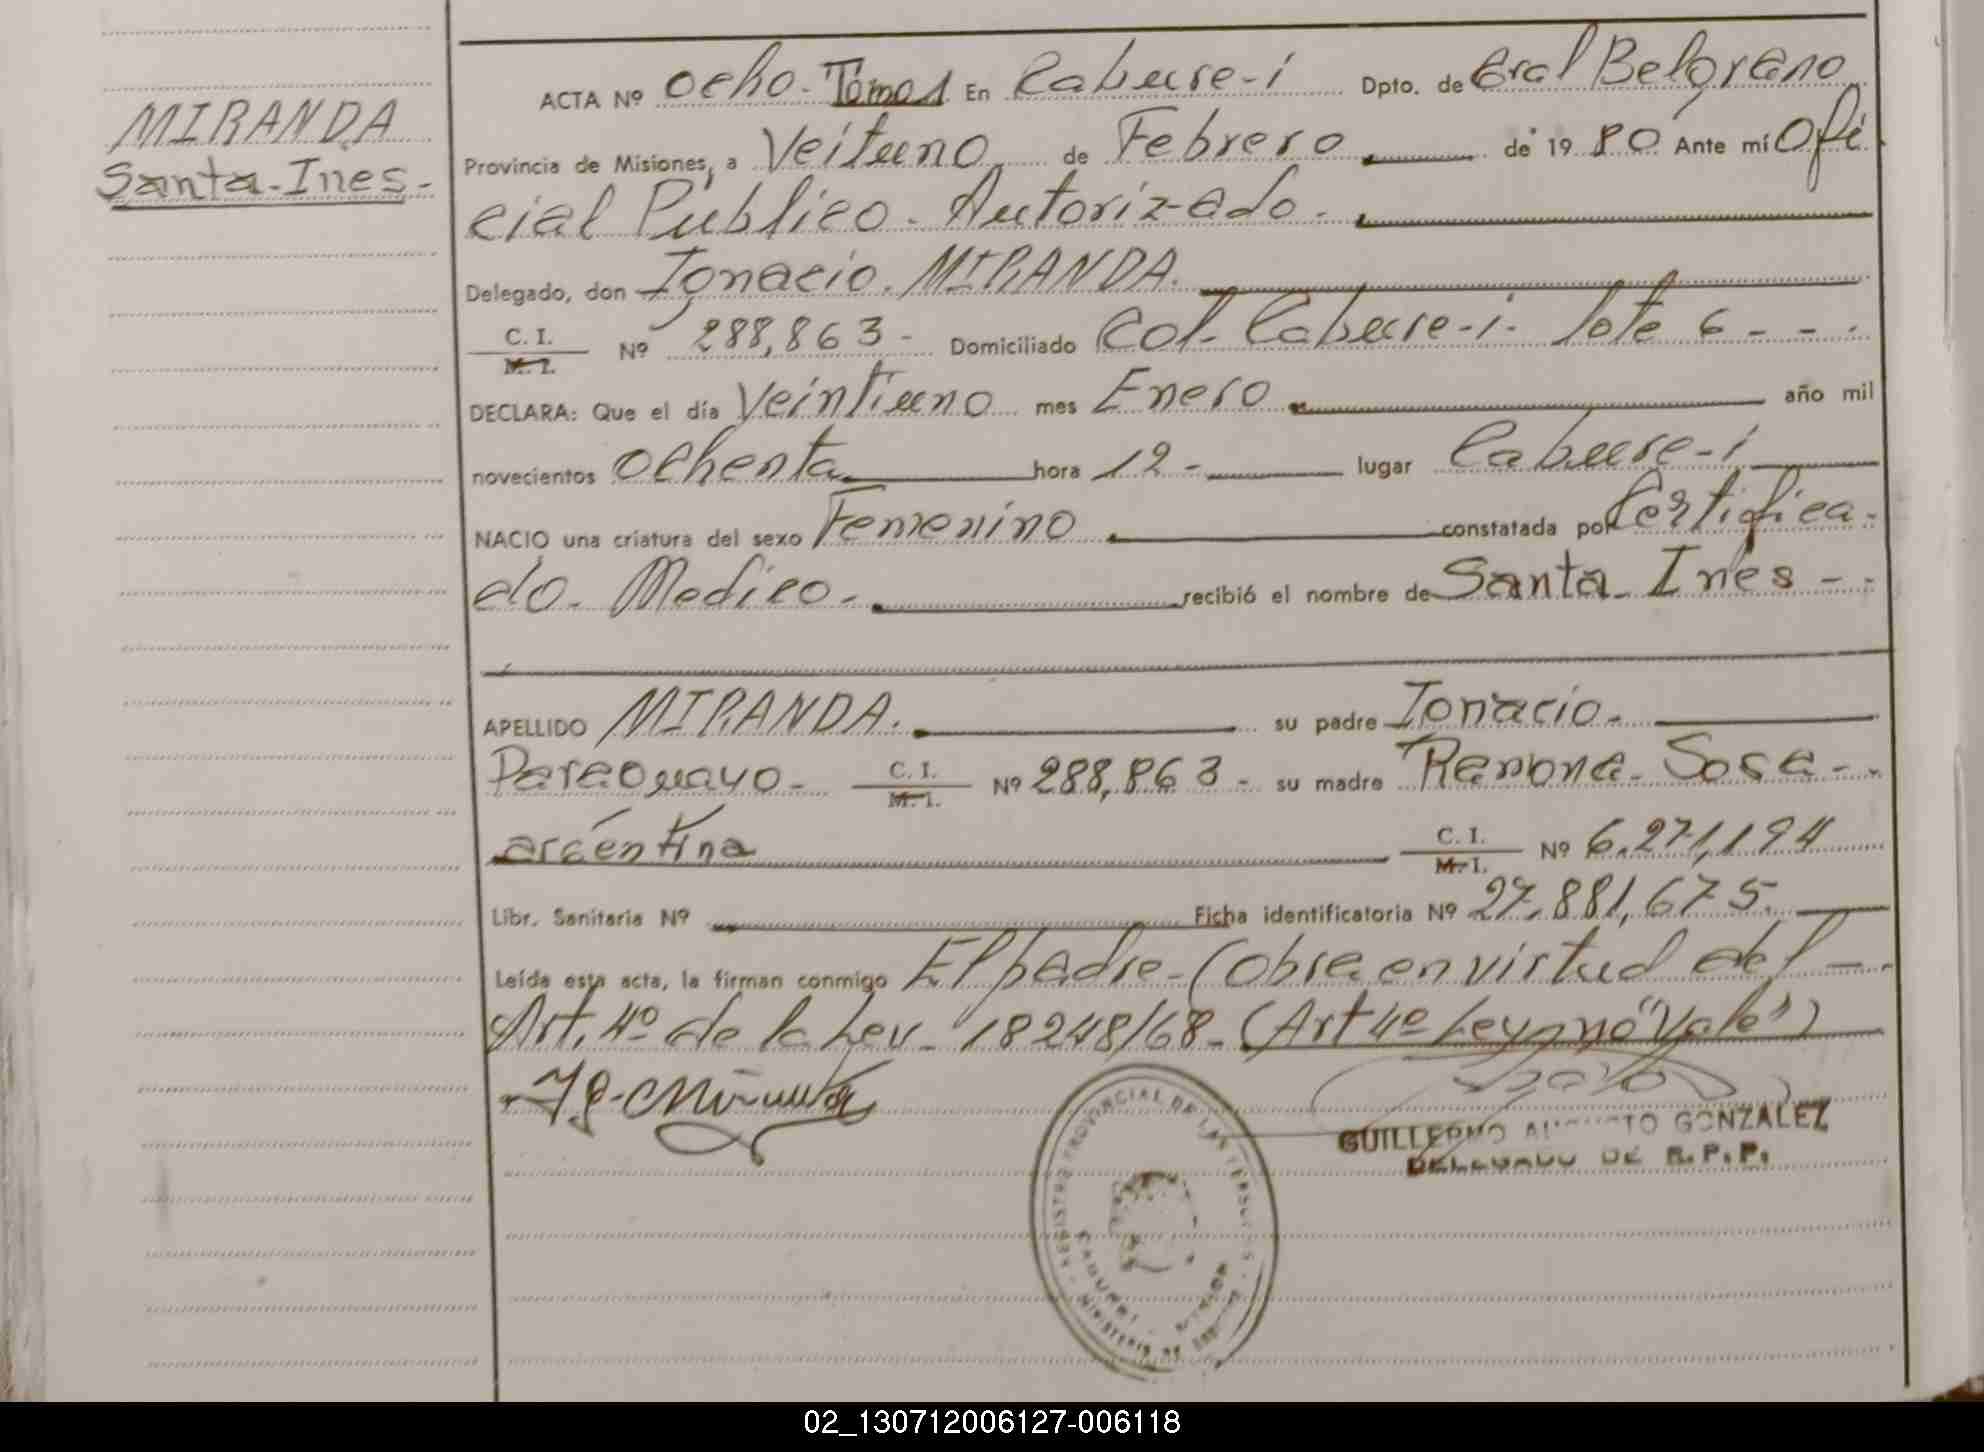 MIRANDA
Santa-Ines-
ACTA Nº ocho. Tomo 1 En Cabure-i Dpto. de Gral Belgrano
Provincia de Misiones, a Veituno de Febrero de 1980 Ante mí Ofi
cial Publico. Autorizado.
Delegado, don Ignacio. MIRANDA.
C. I.
M. I. Nº 288,863- Domiciliado Col. Cabure-i- lote 6 - - .
DECLARA: Que el día Veintiuno mes Enero año mil
novecientos ochenta hora 12 - lugar Cabure-i
NACIO una criatura del sexo Femenino constatada por Certifica-
do. Medico. recibió el nombre de Santa Ines - -
APELLIDO MIRANDA. su padre Ignacio.
Paraguayo- C. I. M. I. Nº 288,863- su madre Ramona Sosa - -
argentina C. I. M. I. Nº 6.271,194
Libr. Sanitaria Nº Ficha identificatoria Nº 27.881,675.
Leída esta acta, la firman conmigo El padre-(obra en virtud del -
Art. 4º de la Ley- 18248/68- (Art 4º Ley no "Vale")
GUILLERMO AUGUSTO GONZALEZ
DELEGADO DE R.P.P.
REGISTRO PROVINCIAL DE LAS PERSONAS
02_130712006127-006118